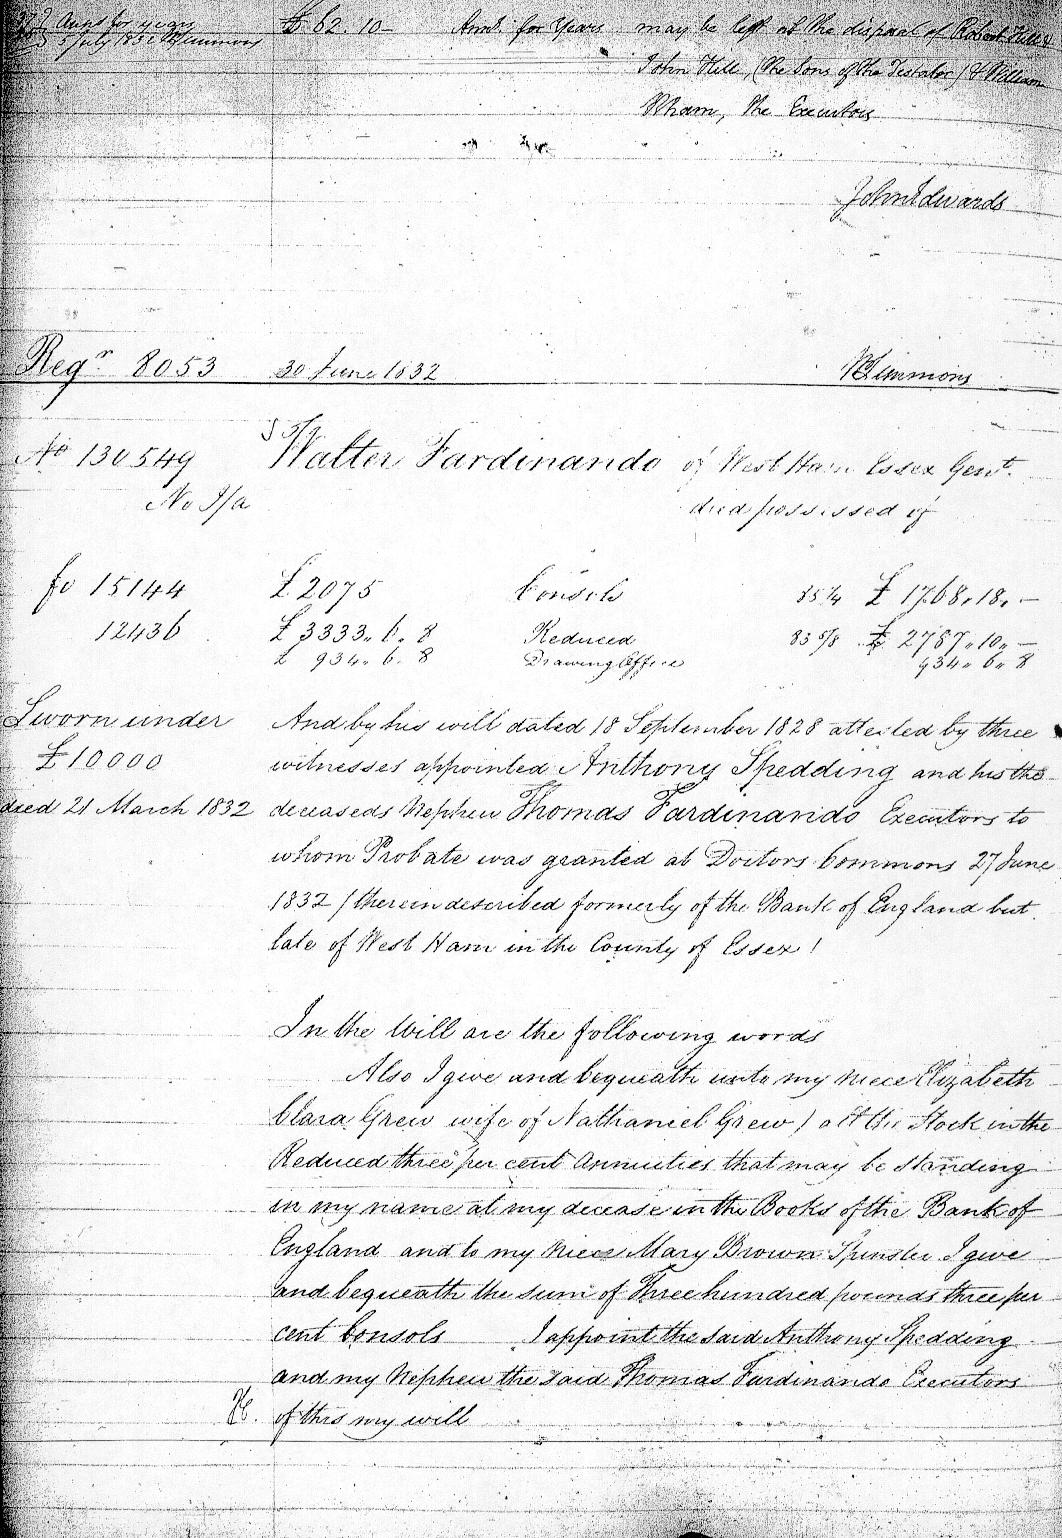 Anns for years £62.10- Ann.s for Years may be left at the disposal of Robert Hill &
5 July 1832 WSimmons
John Hill, (the Sons of the Testator) & William
Wham, the Executors
John Edwards
Reg.r 8053 30 June 1832 WSimmons
No 130549 Walter Fardinando of West Ham Essex Gent.
No I/a died possessed of
fo 15144 £2075 Consols 85 1/4 £1768,,18,,-
12436 £3333,,6,,8 Reduced 83 5/8 £2787,,10,,-
£ 934,,6,,8 Drawing Office 934,,6,,8
Sworn under And by his will dated 18 September 1828 attested by three
£10000 witnesses appointed Anthony Spedding and his the
died 21 March 1832 deceaseds Nephew Thomas Fardinando Executors to
whom Probate was granted at Doctors Commons 27 June
1832 / therein described formerly of the Bank of England but
late of West Ham in the County of Essex /
In the Will are the following words
Also I give and bequeath unto my niece Elizabeth
Clara Grew wife of Nathaniel Grew ) all the Stock in the
Reduced three per cent Annuities that may be standing
in my name at my decease in the Books of the Bank of
England and to my Niece Mary Brown Spinster I give
and bequeath the sum of Three hundred pounds three per
cent Consols I appoint the said Anthony Spedding
and my Nephew the said Thomas Fardinando Executors
of this my will